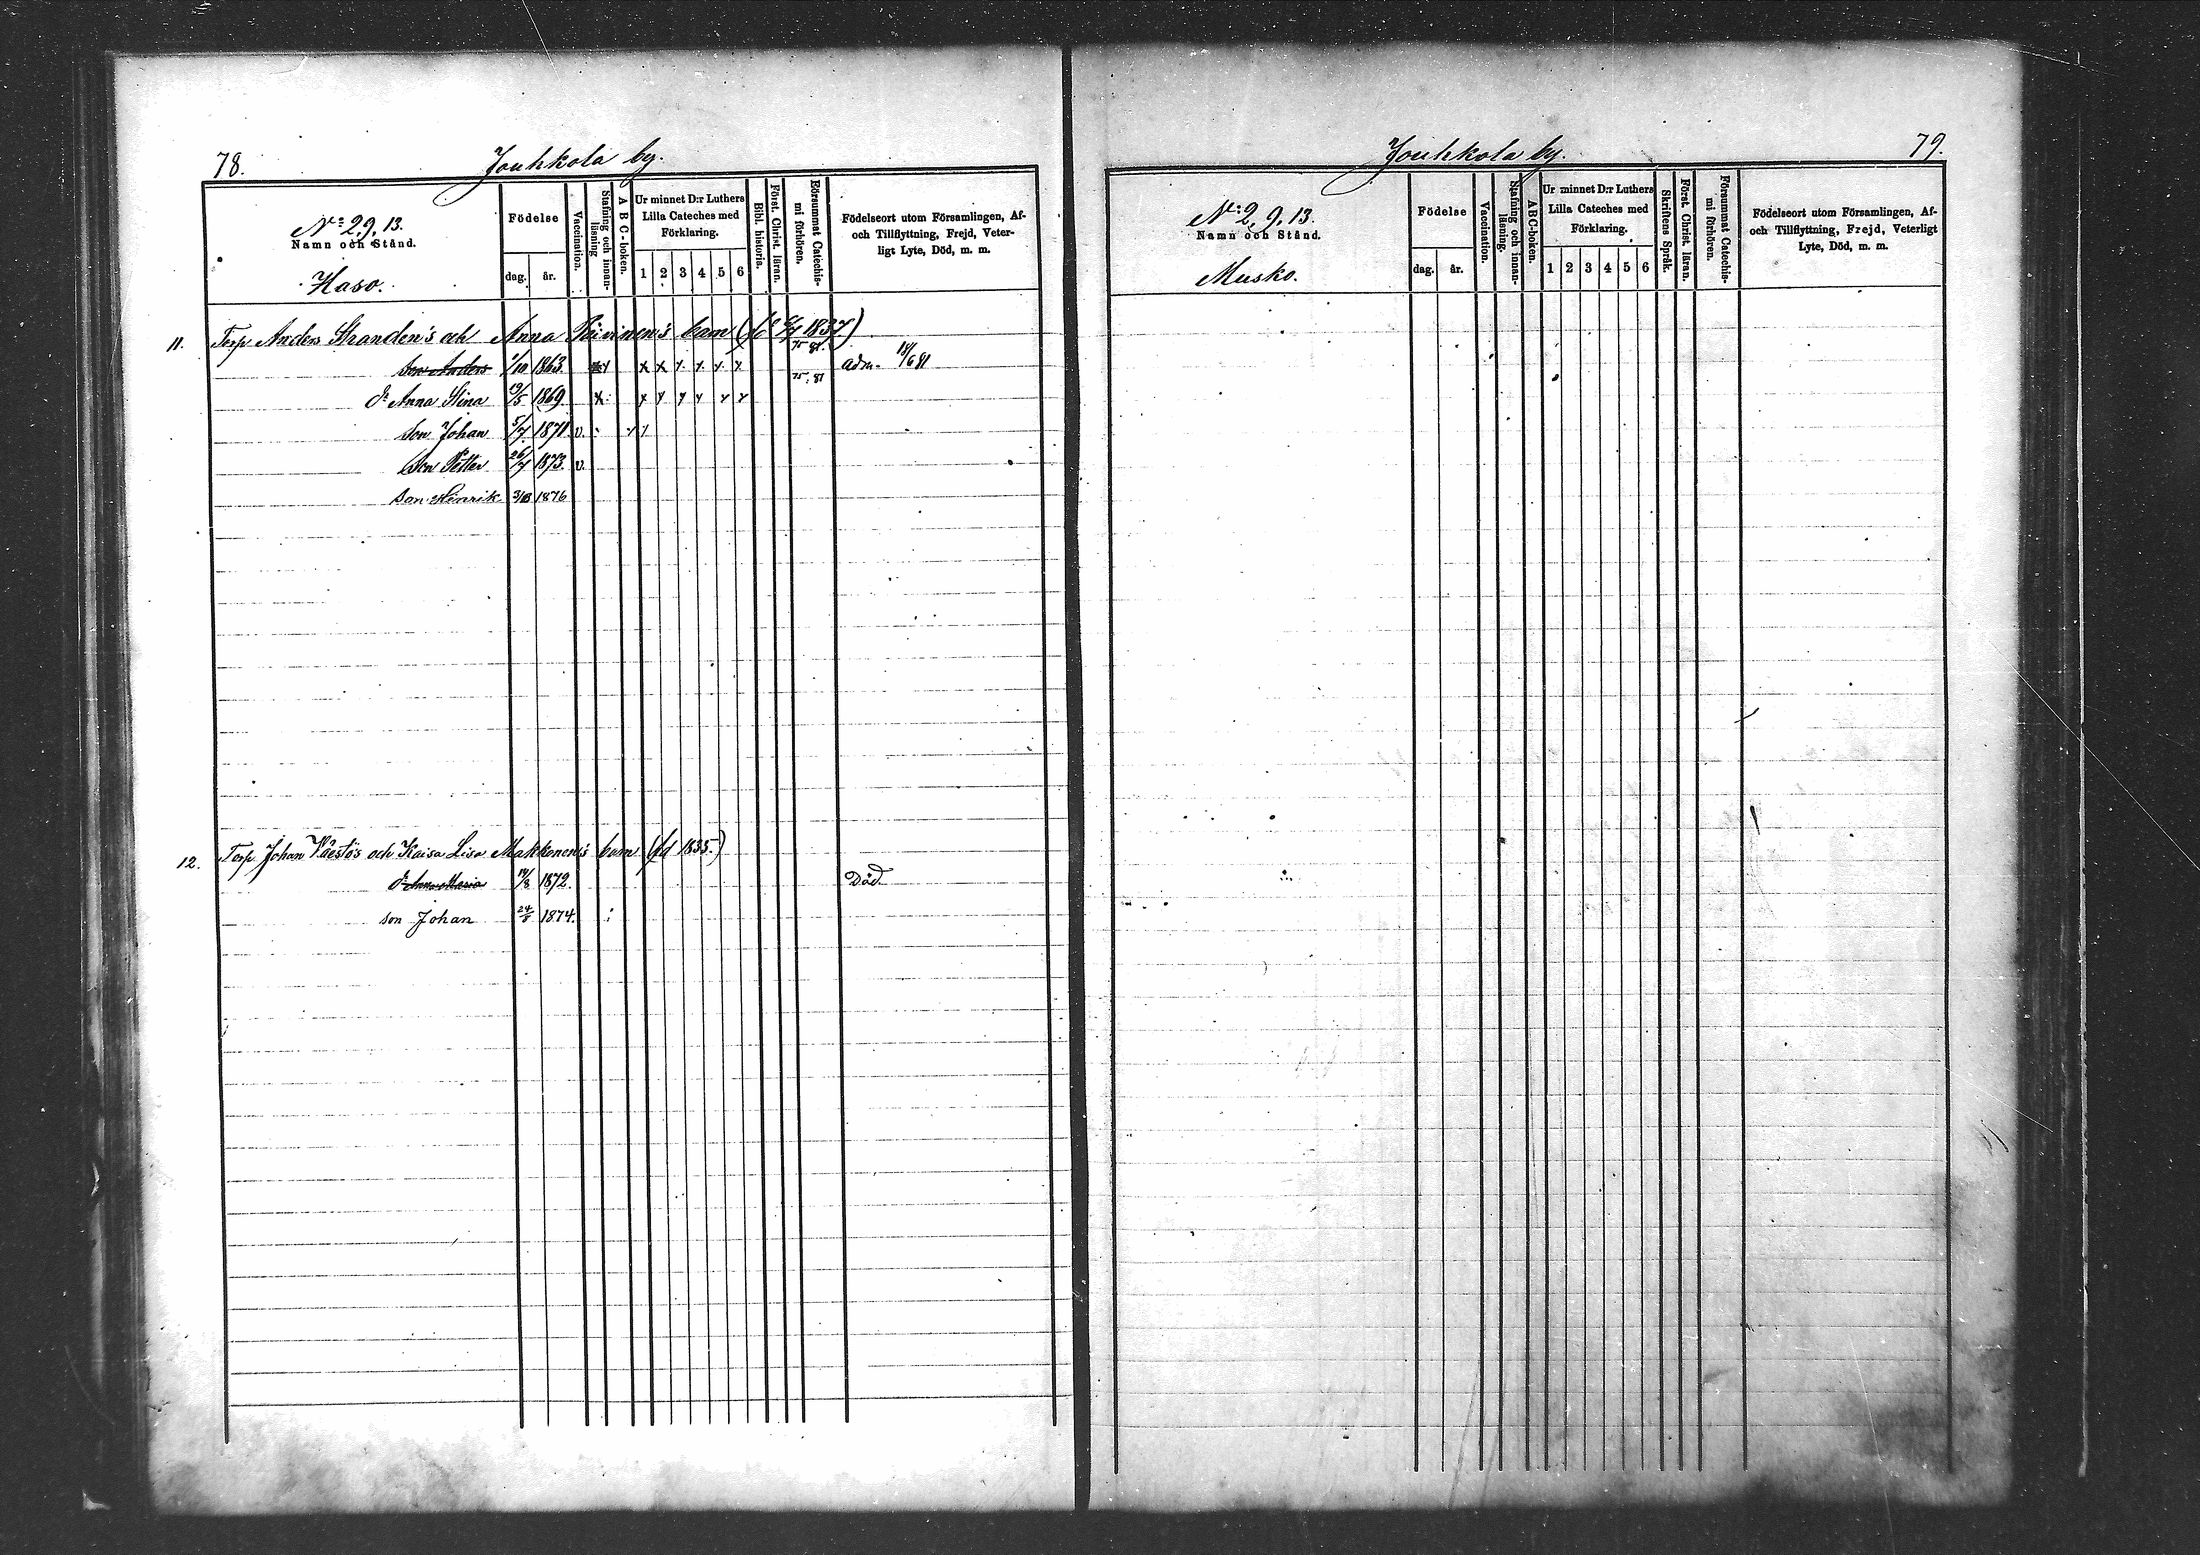 78. Jouhkola by.
No: 2, 9, 13.
Namn och Stånd.
Haso.
Födelse
dag. år.
Vaccination.
Stafning och innanläsning
ABC-boken.
Ur minnet D:r Luthers
Lilla Cateches med
Förklaring.
1 2 3 4 5 6
Bibl. historia.
Först. Christ. läran.
Försummat Catechismi förhören.
Födelseort utom Församlingen, Af-
och Tillflyttning, Frejd, Veter-
ligt Lyte, Död, m. m.
11. Torp Anders Stranden's och Anna barn 1837)
75. 81.
son Anders 1/10 1863 x x x x x x adm. 18/6 81
75. 81
dr Anna Stina 19/5 1869 x x x x x x x
son Johan 5/7 1871 v.
son Petter 26/7 1873. v.
son Henrik 1876
12. Torp Johan Väestö's och Kaisa Lisa Makkonen's barn (fd 1835.)
dr Anna Maria 14/8 1872 Död
son Johan 24/8 1874.
Jouhkola by. 79.
No: 2, 9, 13.
Namn och Stånd.
Musko.
Födelse
dag. år.
Vaccination.
Stafning och innanläsning.
ABC-boken.
Ur minnet D:r Luthers
Lilla Cateches med
Förklaring.
1 2 3 4 5 6
Skriftens Språk.
Först. Christ. läran.
Försummat Catechismi förhören.
Födelseort utom Församlingen, Af-
och Tillflyttning, Frejd, Veterligt
Lyte, Död, m. m.